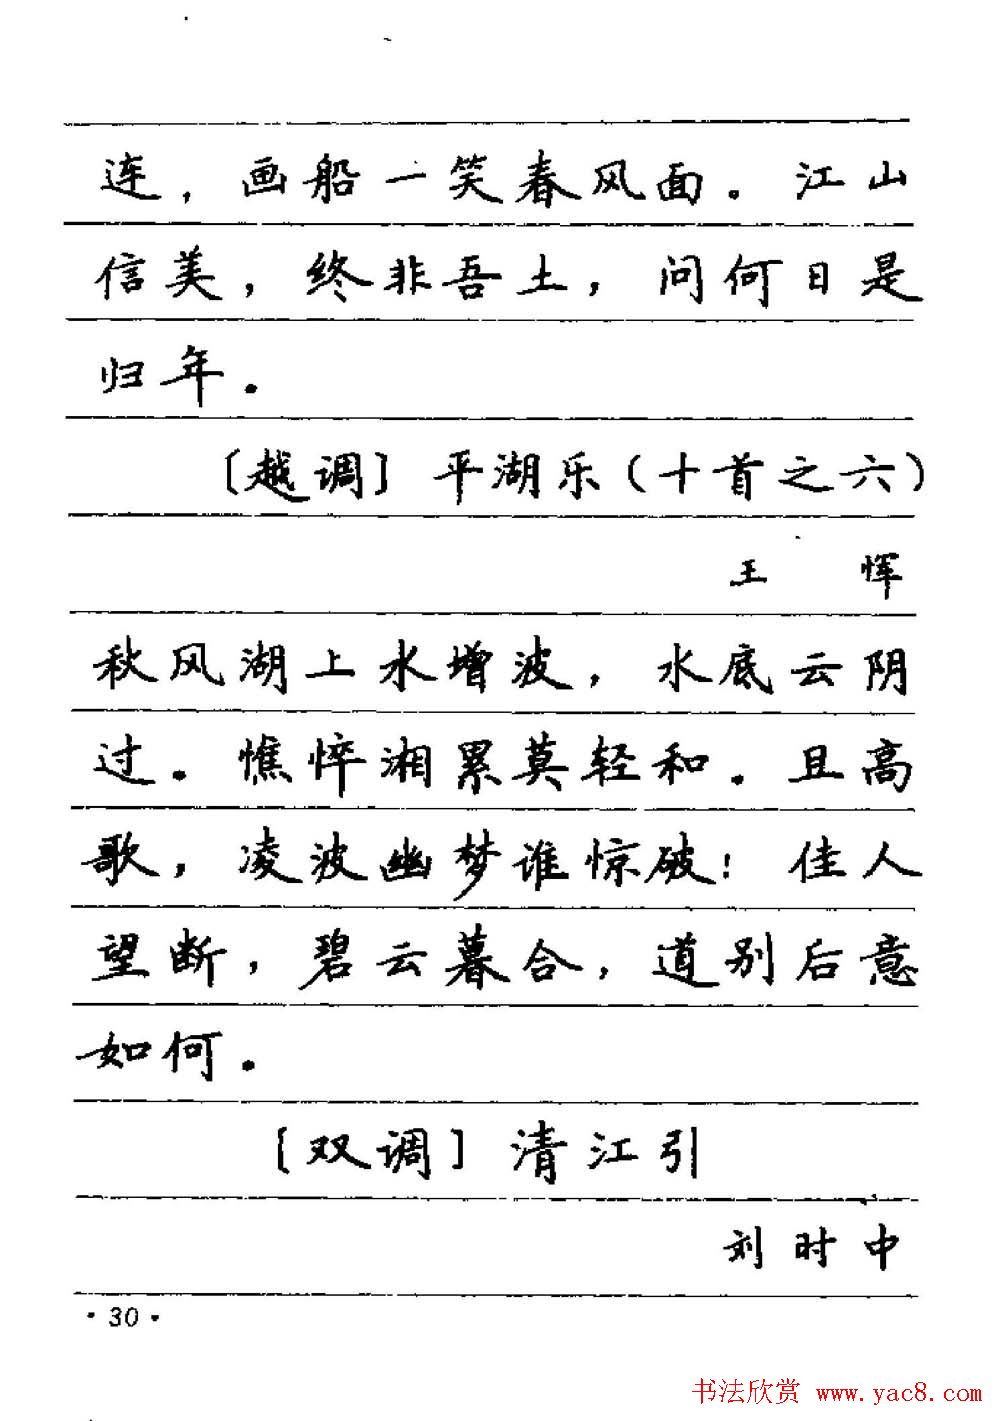 连，画船一笑春风面。江山
信美，终非吾土，问何日是
归年。
［越调］平湖乐（十首之六）
王　恽
秋风湖上水增波，水底云阴
过。憔悴湘累莫轻和。且高
歌，凌波幽梦谁惊破！佳人
望断，碧云暮合，道别后意
如何。
［双调］清江引
刘时中
·30·
书法欣赏 www.yac8.com